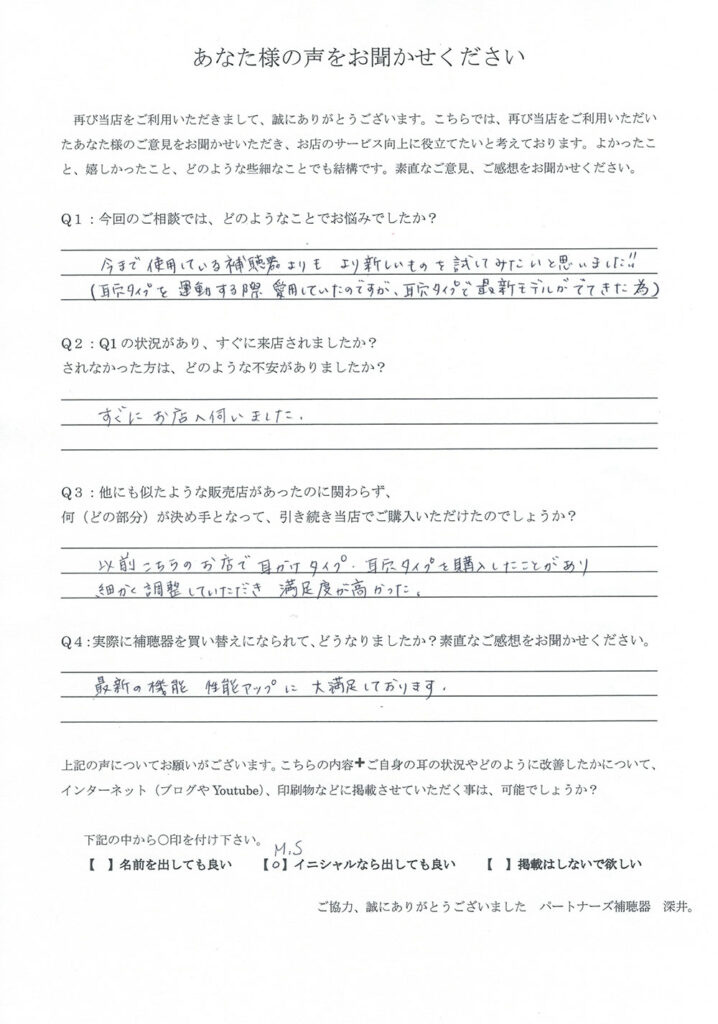 あなた様の声をお聞かせください
再び当店をご利用いただきまして、誠にありがとうございます。こちらでは、再び当店をご利用いただい
たあなた様のご意見をお聞かせいただき、お店のサービス向上に役立てたいと考えております。よかったこ
と、嬉しかったこと、どのような些細なことでも結構です。素直なご意見、ご感想をお聞かせください。
Q1：今回のご相談では、どのようなことでお悩みでしたか？
今まで使用している補聴器よりも より新しいものを試してみたいと思いました!!
(耳穴タイプを運動する際愛用していたのですが、耳穴タイプで最新モデルがでてきた為)
Q２：Q1の状況があり、すぐに来店されましたか？
されなかった方は、どのような不安がありましたか？
すぐに お店へ伺いました。
Q３：他にも似たような販売店があったのに関わらず、
何（どの部分）が決め手となって、引き続き当店でご購入いただけたのでしょうか？
以前こちらのお店で耳かけタイプ・耳穴タイプを購入したことがあり
細かく調整していただき 満足度が高かった。
Q４：実際に補聴器を買い替えになられて、どうなりましたか？素直なご感想をお聞かせください。
最新の機能 性能アップに 大満足しております。
上記の声についてお願いがございます。こちらの内容＋ご自身の耳の状況やどのように改善したかについて、
インターネット（ブログや Youtube）、印刷物などに掲載させていただく事は、可能でしょうか？
下記の中から〇印を付け下さい。
M.S
【 】名前を出しても良い 【o】イニシャルなら出しても良い 【 】掲載はしないで欲しい
ご協力、誠にありがとうございました パートナーズ補聴器 深井。